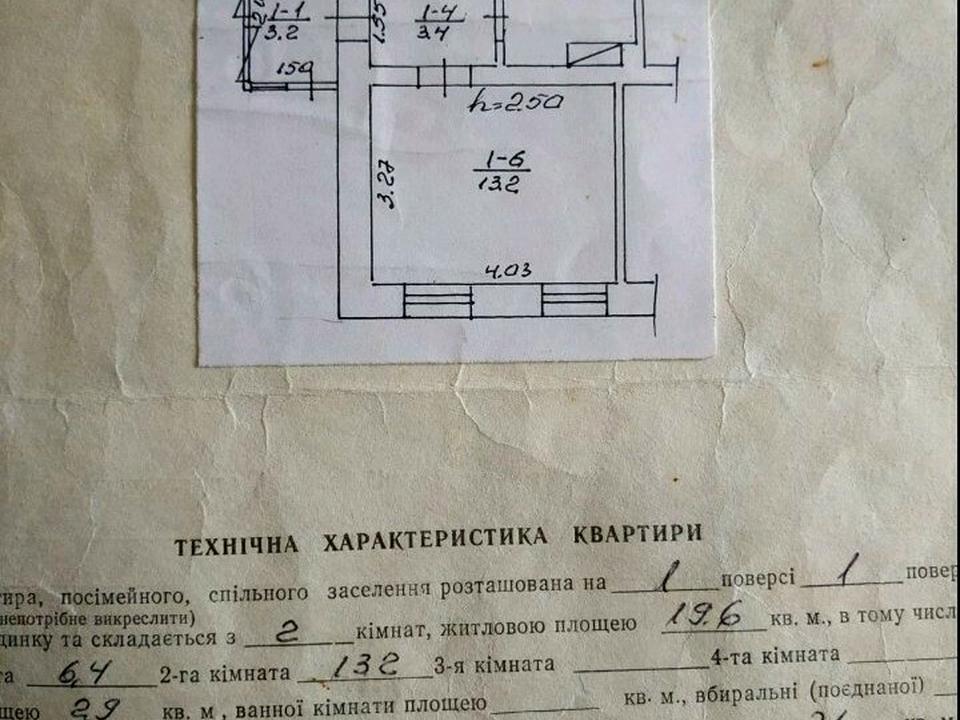 1-1
3.2
1.55
1-4
3.4
150
h=2.50
3.27
1-6
13.2
4.03
ТЕХНІЧНА ХАРАКТЕРИСТИКА КВАРТИРИ
тира, посімейного, спільного заселення розташована на 1 поверсі 1 повер
непотрібне викреслити)
динку та складається з 2 кімнат, житловою площею 19.6 кв. м., в тому числ
та 6,4 2-га кімната 132 3-я кімната 4-та кімната
щею 2,9 кв. м , ванної кімнати площею кв. м., вбиральні (поєднаної)